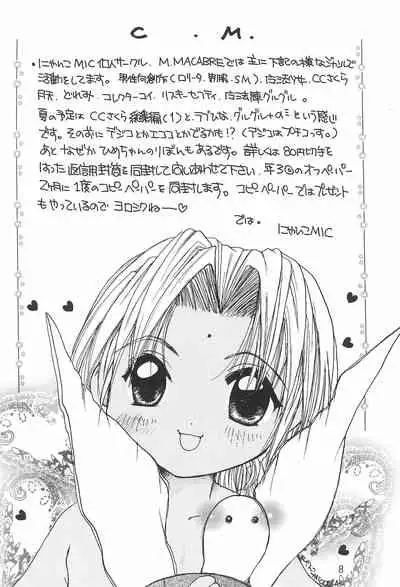 C . M.
・にゃんこMIC個人サークル、M.MACABREでは主に下記の様なジャンルで
活動をしてます。男性向創作(ロリータ,制服,SM),CCさくら
どれみ,コレクターユイ,リスキーセフティ,魔法陣グルグル。
夏の予定はCCさくら総集編(1)と、ラブひな、グルグル+αという感じ
です。そのおにデジコとかエココとかでるかも!?(デジコはプチコっす。)
あとなぜかひめちゃんのりぼんもあるです。詳しくは80円切手を
はった返信用封筒を同封して問い合わせて下さい。年3回のオフペーパー
2ヶ月に1度のコピペーパーを同封します。コピペーパーではプレゼント
もやっているのでヨロシクねー♡
では。 にゃんこMIC
8